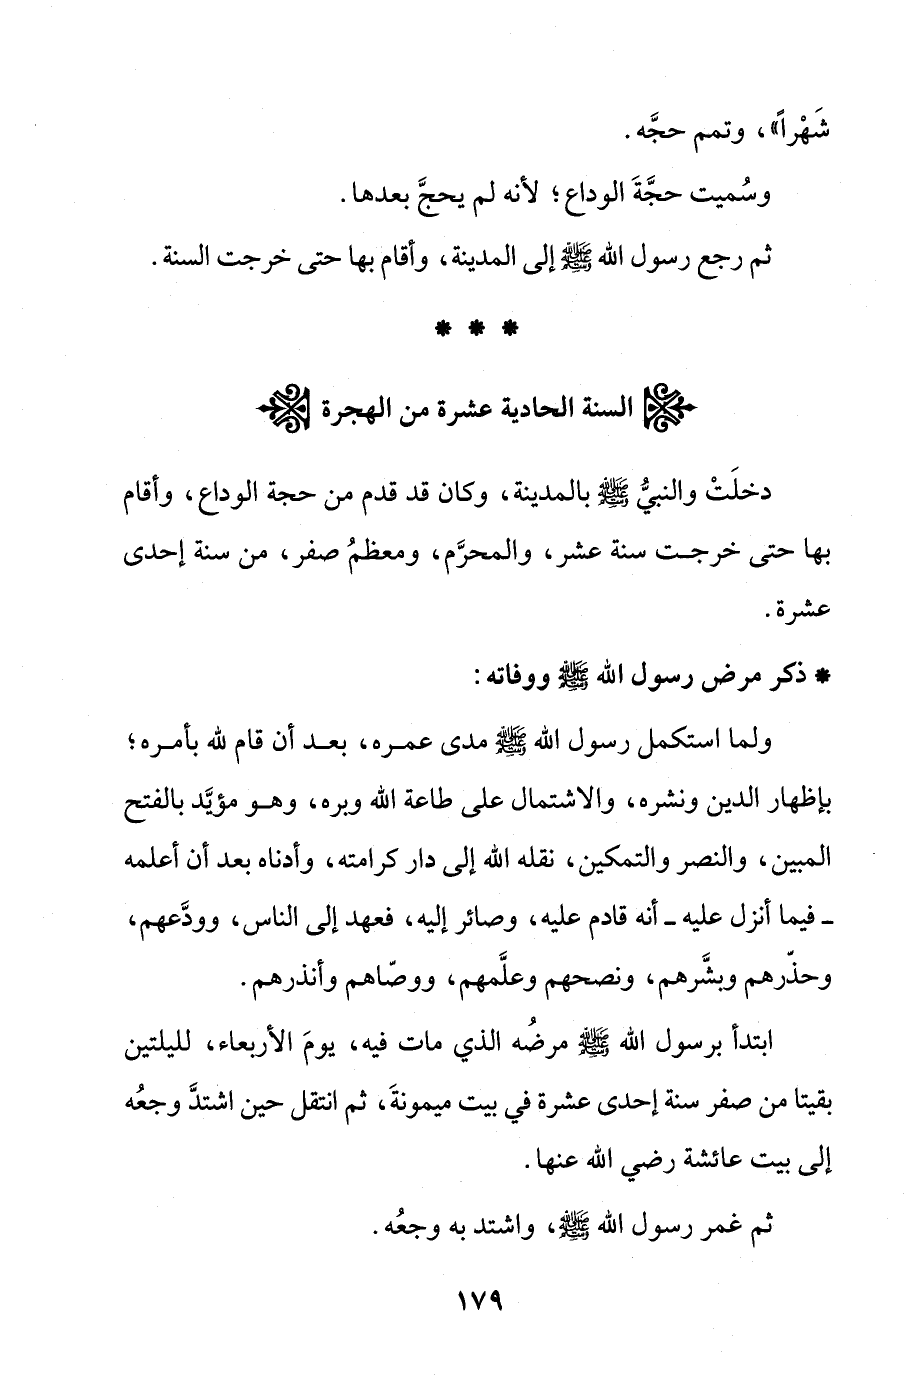 شَهْراً»، وتمم حجَّه.
وسُميت حجَّةَ الوداع؛ لأنه لم يحجَّ بعدها.
ثم رجع رسول الله ﷺ إلى المدينة، وأقام بها حتى خرجت السنة.
* * *
السنة الحادية عشرة من الهجرة
دخلَتْ والنبيُّ ﷺ بالمدينة، وكان قد قدم من حجة الوداع، وأقام
بها حتى خرجـت سنة عشر، والمحرَّم، ومعظمُ صفر، من سنة إحدى
عشرة.
* ذكر مرض رسول الله ﷺ ووفاته:
ولما استكمل رسول الله ﷺ مدى عمـره، بعـد أن قام لله بأمـره؛
بإظهار الدين ونشره، والاشتمال على طاعة الله وبره، وهـو مؤيَّد بالفتح
المبين، والنصر والتمكين، نقله الله إلى دار كرامته، وأدناه بعد أن أعلمه
ـ فيما أنزل عليه ـ أنه قادم عليه، وصائر إليه، فعهد إلى الناس، وودَّعهم،
وحذّرهم وبشَّرهم، ونصحهم وعلَّمهم، ووصّاهم وأنذرهم.
ابتدأ برسول الله ﷺ مرضُه الذي مات فيه، يومَ الأربعاء، لليلتين
بقيتا من صفر سنة إحدى عشرة في بيت ميمونةَ، ثم انتقل حين اشتدَّ وجعُه
إلى بيت عائشة رضي الله عنها.
ثم غمر رسول الله ﷺ، واشتد به وجعُه.
١٧٩